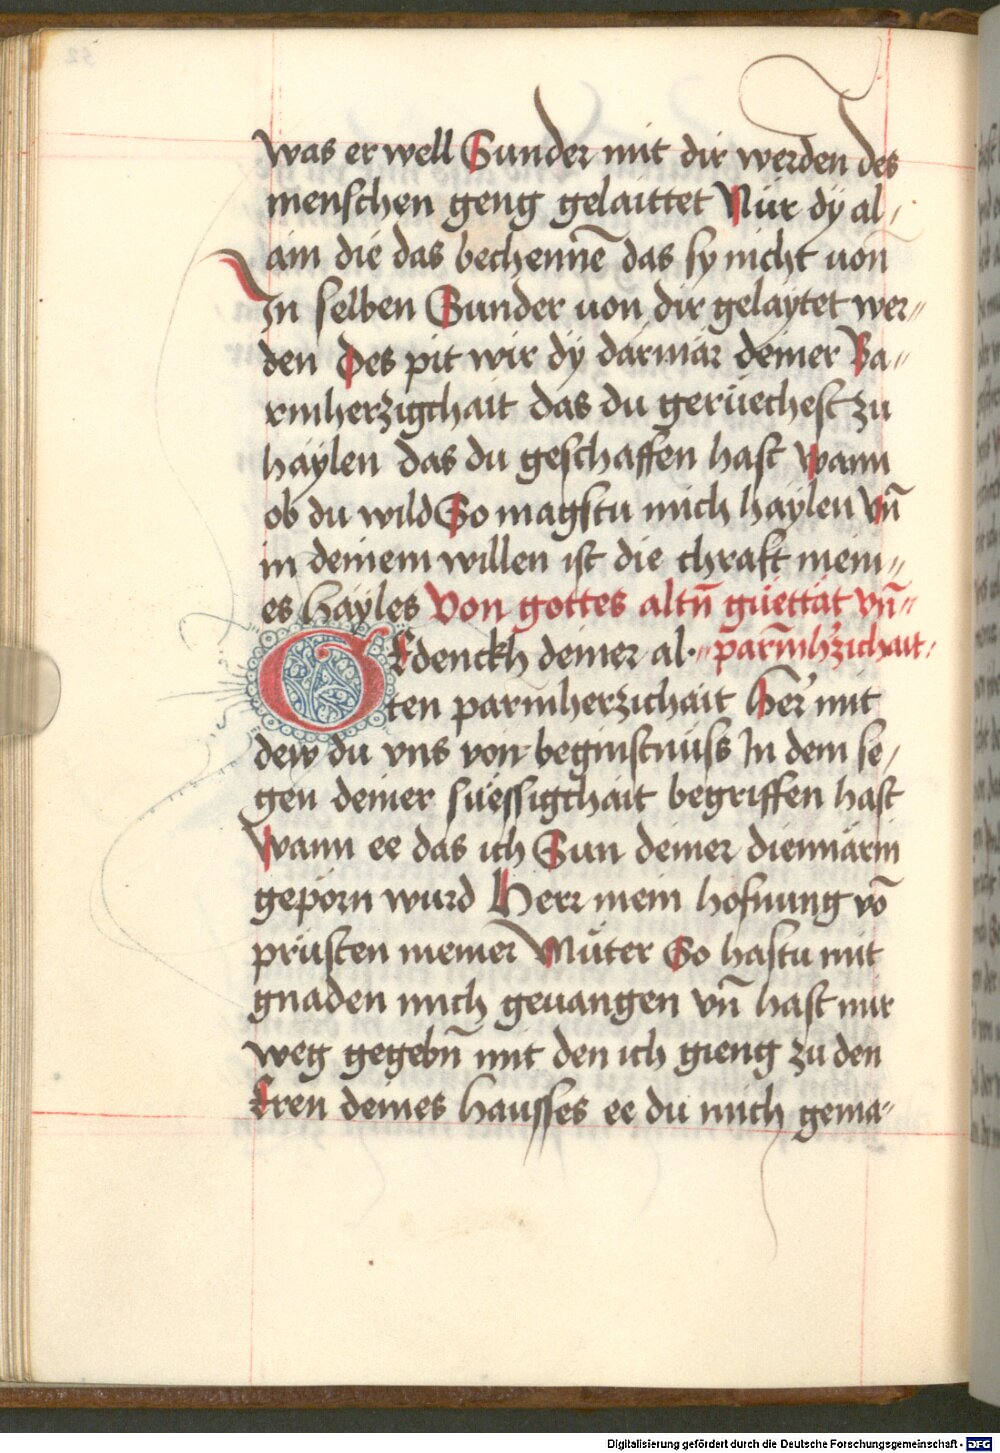 was er well Sunder mit dir werden des
menschen geng gelaittet Nür dÿ al/
ain die das bechenne᷑ das sy nicht uon
In selben Sunder uon dir gelaÿtet wer〃
den Des pit wir dÿ darmär deiner Ba〃
rmherzigchait das du gerüechest zu
haÿlen das du geschaffen hast wann
ob du wild So magstu mich haÿlen vn̄
in deinem willen ist die chraft mein〃
es haÿles Von gottes altn̄ güettät vn̄〃
GEdenckh deiner al〃 parm̄hzichait
ten parmherzichait Her᷑ mit
dew du vns von beginstnüss In dem se/
gen deiner süessigchait begriffen hast
Wann ee das ich Sun deiner diennärin
geporn wurd Herr mein hofnung vō
prüsten meiner Müter So hastu mit
gnaden mich geuangen vn̄ hast mir
weg gegebn̄ mit den ich gieng zu den
Eren deines hausses ee du mich gema〃
Digitalisierung gefördert durch die Deutsche Forschungsgemeinschaft - DFG